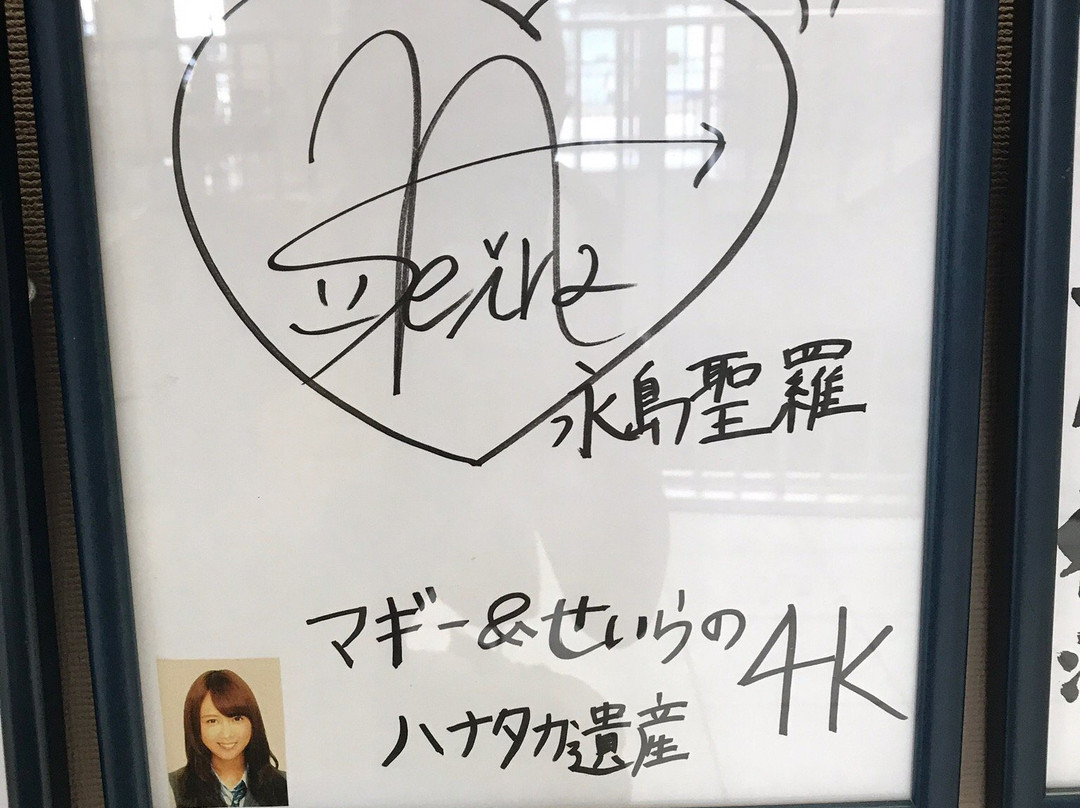 Seira
永島聖羅
マギー&せいらの4K
ハナタカ遺産